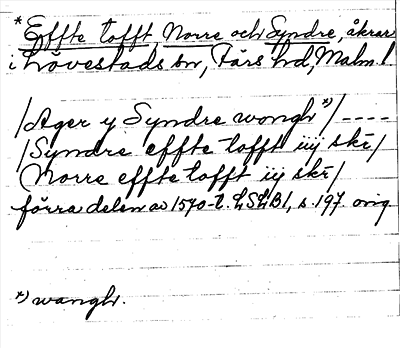 * Effte tofft Norre och Syndre, åkrar
i Lövestads sn, Färs hd, Malm. l.
/Ager y Syndre wongh *)/ ----
/Syndre effte tofft iiij skr/
Norre effte tofft iij skr/
förra delen av 1570-t. LSLB1, s. 197. orig.
*) wangh.